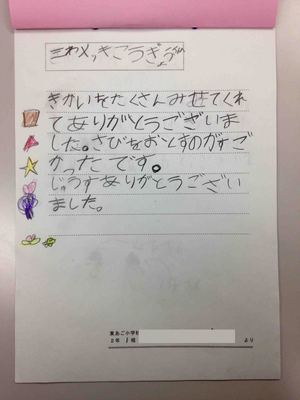 きわメッきこうぎょうさま
きかいをたくさんみせてくれ
てありがとうございま
した。さびをおとすのがすご
かったです。
じゅうすありがとうござい
ました。
東あご小学校
2年 1組
より